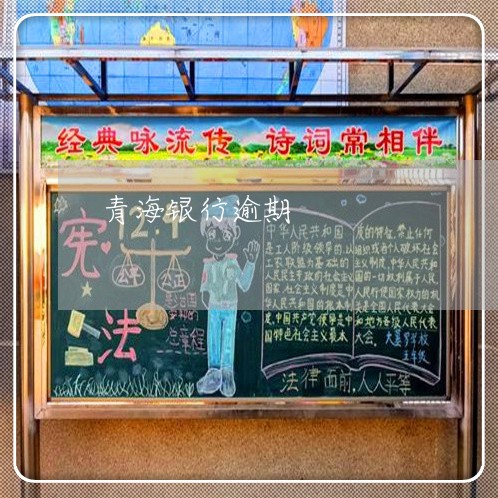 经典咏流传 诗词常相伴
青海银行逾期
宪
12.4
法
公平
公正
总章程
中华人民共和国
是工人阶级领导的,以
工农联盟为基础的
人民民主专政的社会主义
国家,社会主义制度是中
华人民共和国的根本制
度,中国共产党领导是中
国特色社会主义最本
质的特征,禁止任何
组织或者个人破坏社会
主义制度,中华人民共和
国的一切权利属于人民,
人民行使国家权力的机
关是全国人民代表大会
和地方各级人民代表
大会。
五年级
法律面前,人人平等